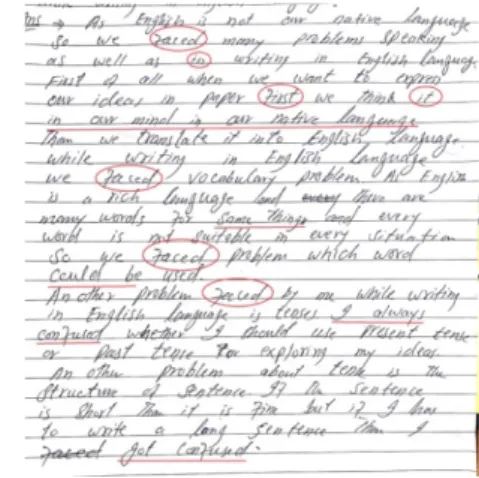 Ans → As English is not our native language
So we faced many problems speaking
as well as in writing in English language
First of all when we want to expres
our ideas in paper First we think it
in our mind in our native language
Than we translate it into English language
while writing in English language
we faced vocabulary problem As English
is a rich language and every there are
many words for some things and every
word is not suitable in every situation
So we faced problem which word
could be used.
An other problem faced by me while writing
in English language is tenses I always
confused whether I should use present tense
or past tense for exploring my ideas.
An other problem about tense is the
structure of sentence If the sentence
is short than it is fine but if I has
to write a long sentence than I
faced got confused.